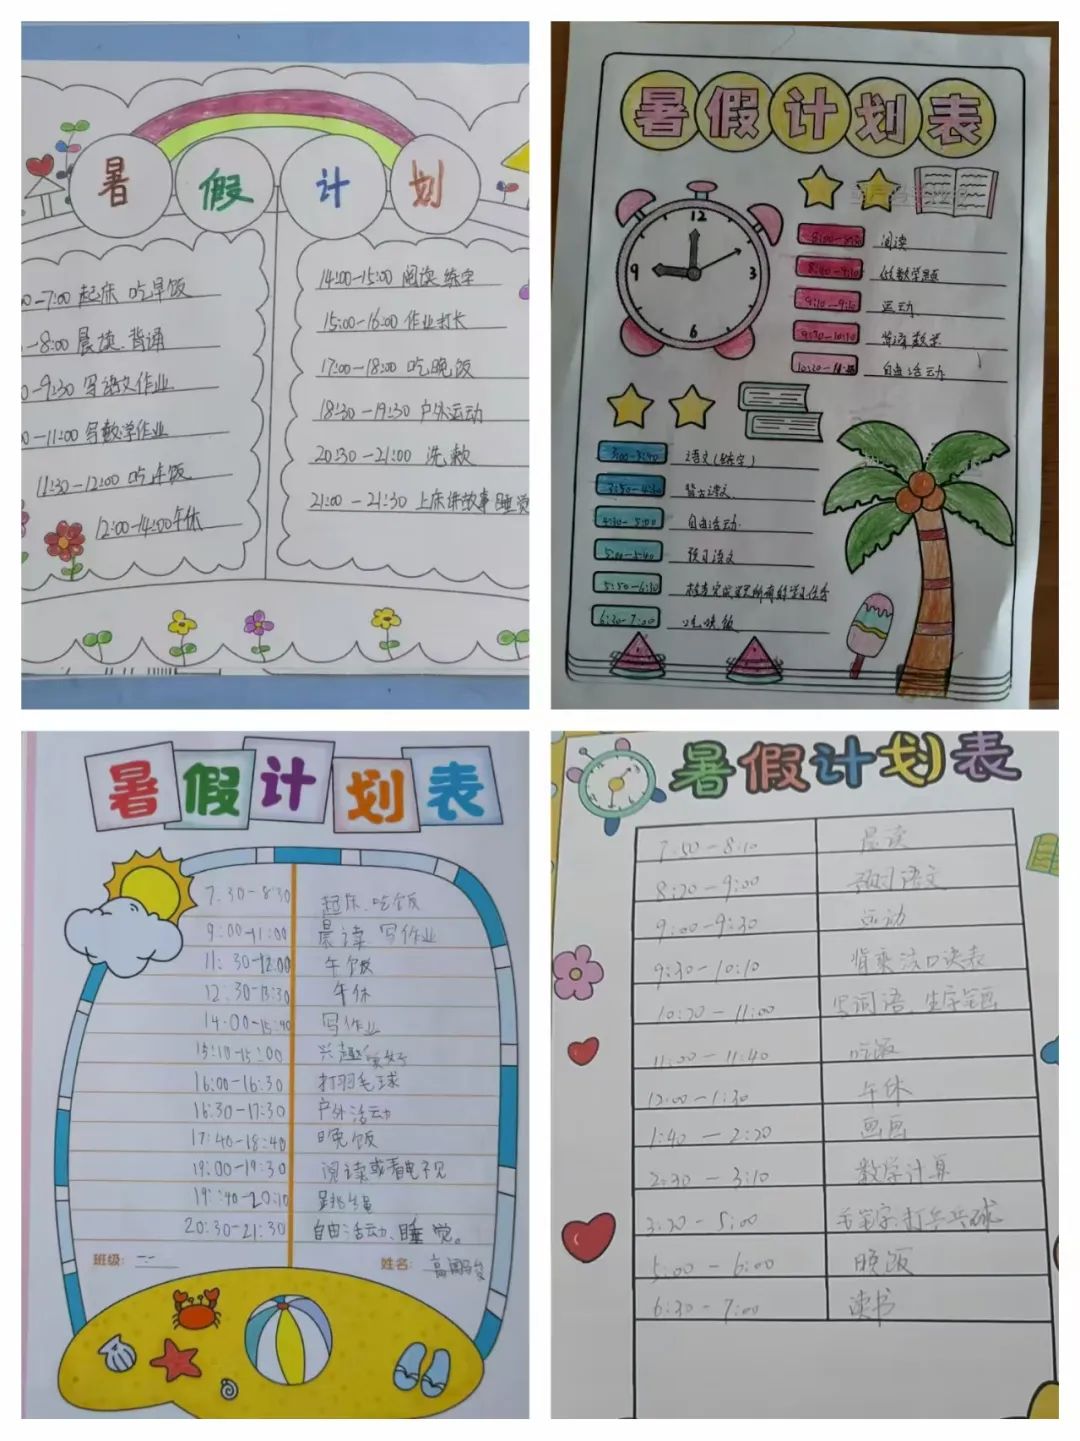 暑假计划
00-7:00 起床 吃早饭
-8:00 晨读、背诵
0-9:30 写语文作业
0-11:00 写数学作业
11:30-12:00 吃午饭
12:00-14:00 午休
14:00-15:00 阅读 练字
15:00-16:00 作业打卡
17:00-18:00 吃晚饭
18:30-19:30 户外运动
20:30-21:00 洗漱
21:00-21:30 上床讲故事 睡觉
暑假计划表
12
9
3
6
阅读
8:40-9:10 做数学题
9:10-9:30 运动
9:30-10:10 背诵数学
自由活动
3:00-3:40 语文(练字)
3:50-4:30 背古诗文
4:30-5:00 自由活动
5:00-5:40 预习语文
5:50-6:30 检查完成所有的学习任务
6:30-7:00 吃晚饭
暑假计划表
7:30-8:30 起床、吃饭
9:00-11:00 晨读 写作业
11:30-12:00 午饭
12:30-13:30 午休
14:00-15:40 写作业
15:10-15:00 兴趣爱好
16:00-16:30 打羽毛球
16:30-17:30 户外活动
17:40-18:40 晚饭
19:00-19:30 阅读或看电视
19:40-20:10 跳绳
20:30-21:30 自由活动、睡觉。
班级:
姓名:
暑假计划表
7:50-8:10 晨读
8:20-9:00 预习语文
9:00-9:30 运动
9:30-10:10 背乘法口诀表
10:20-11:00 写词语、生字笔画
11:00-11:40 吃饭
12:00-1:30 午休
1:40-2:20 画画
2:30-3:10 数学计算
3:20-5:00 毛笔字、打乒乓球
5:00-6:00 晚饭
6:30-7:00 读书